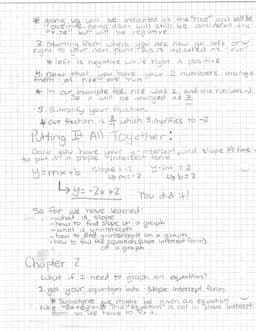 * going up will be indicated as the "rise" and will be
positive, going down will still be considered the
"rise" but will be negative.
3. Starting from where you are now go left or
right to your next point. This is indicated as "run"
* left is negative while right is positive
4. now that you have your 2 numbers arrange
them as rise run
* in our example the rise was 2, and the run was -1
so it will be arranged as 2
5. Simplify your fraction
* our fraction is which simplifies to -2
Putting It All Together:
Once you have your y-intercept, and slope it's time
to put it in slope-intercept form
y=mx+b slope = -2 y-int = 2
↳m=-2 ↳b=2
↳y=-2x+2 You did it!
So far we have learned
-what is slope
-how to find slope on a graph
-what is y-intercept
-how to find y-intercept on a graph
-how to find the equation (slope intercept form)
of a graph
Chapter 2
What if I need to graph an equation?
1. get your equation into slope intercept form
* Sometimes we might be given an equation
like This equation is not in slope intercept
form so we have to fix it.